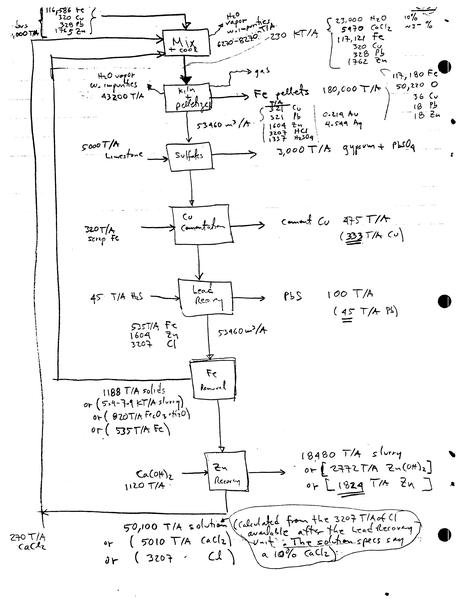 116,586 Fe
320 Cu
328 Pb
1765 Zn
H₂O
vapor
w. impurities
6270-8270 T/A
Mix
+ cool
230 KT/A
23,000 H₂O
5470 CaCl₂
117,121 Fe
320 Cu
328 Pb
1762 Zn
10%
H₂O vapor
w. impurities
43200 T/A
Kiln
+
pelletizer
gas
Fe pellets 180,000 T/A
117,180 Fe
50,220 O
36 Cu
18 Pb
18 Zn
T/A
321 Cu
321 Pb
1604 Zn
3207 HCl
1337 H₂SO₄
0.219 Au
4.544 Ag
53460 m³/A
5000 T/A
Limestone
Sulfates
3,000 T/A gypsum + PbSO₄
320 T/A
scrap Fe
Cu
Cementation
cement Cu 475 T/A
(333 T/A Cu)
45 T/A H₂S
Lead
Recovery
PbS 100 T/A
(45 T/A Pb)
535 T/A Fe
1604 Zn
3207 Cl
53460 m³/A
Fe
Removal
1188 T/A solids
or (5.04-7.09 KT/A slurry)
or (820 T/A Fe₂O₃·H₂O)
or (535 T/A Fe)
Ca(OH)₂
1120 T/A
Zn
Recovery
18480 T/A slurry
or [2772 T/A Zn(OH)₂]
or [1824 T/A Zn]
270 T/A
CaCl₂
50,100 T/A solution
or (5010 T/A CaCl₂)
or (3207 · Cl)
(Calculated from the 3207 T/A of Cl
available after the Lead Recovery
unit. The solution specs say
a 10% CaCl₂)